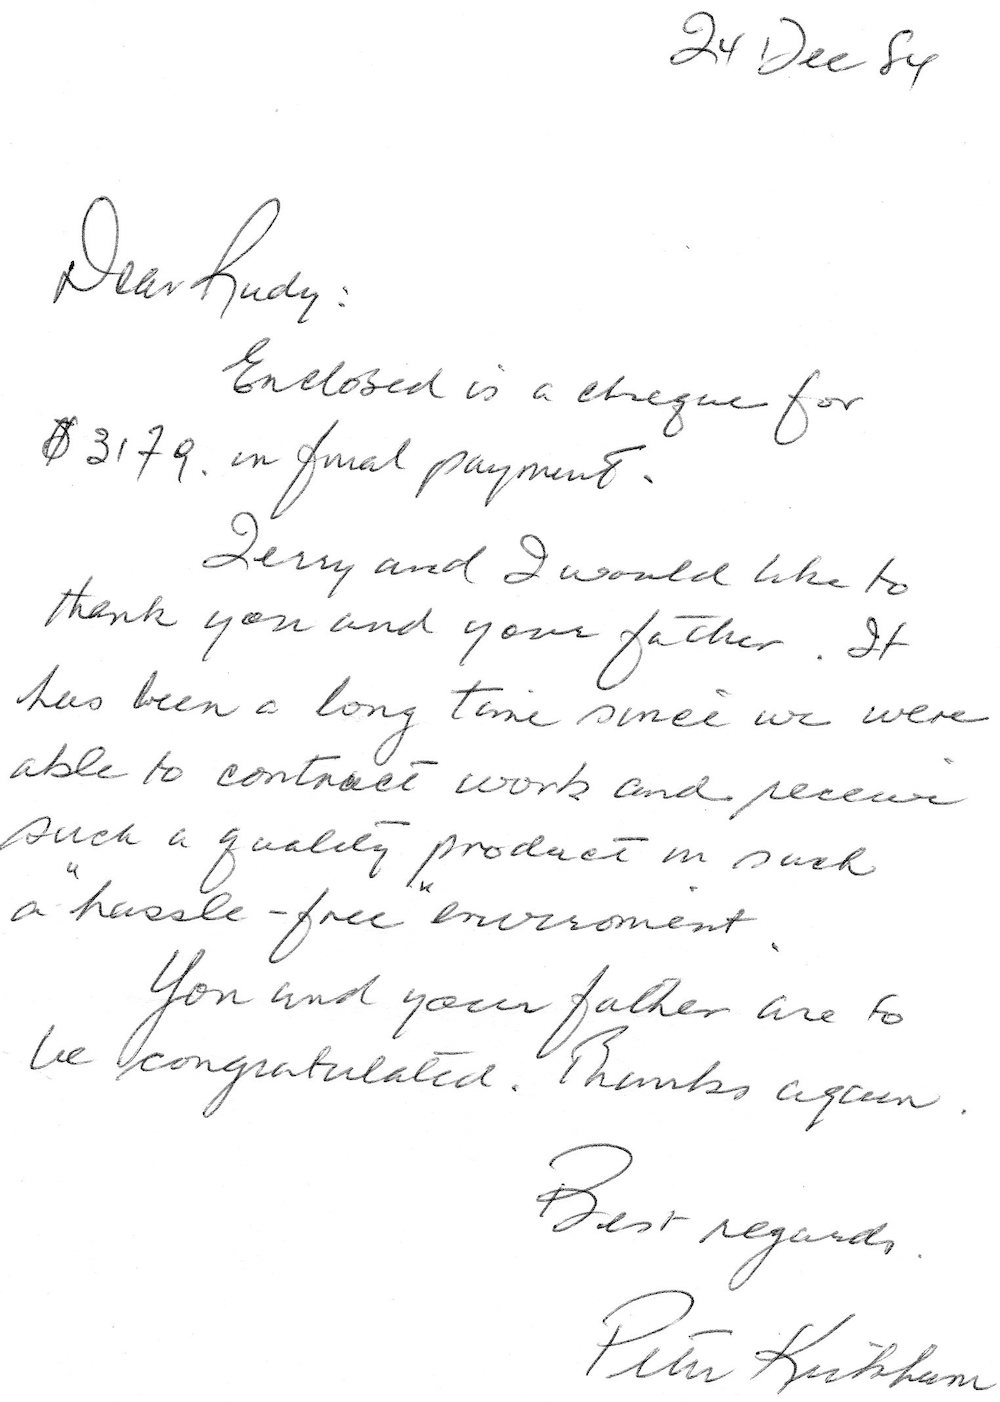 24 Dec 84
Dear Rudy:
Enclosed is a cheque for
$3179. in final payment.
Terry and I would like to
thank you and your father. It
has been a long time since we were
able to contract work and receive
such a quality product in such
a "hassle-free" enviroment.
You and your father are to
be congratulated. Thanks again.
Best regards.
Peter Kirkham